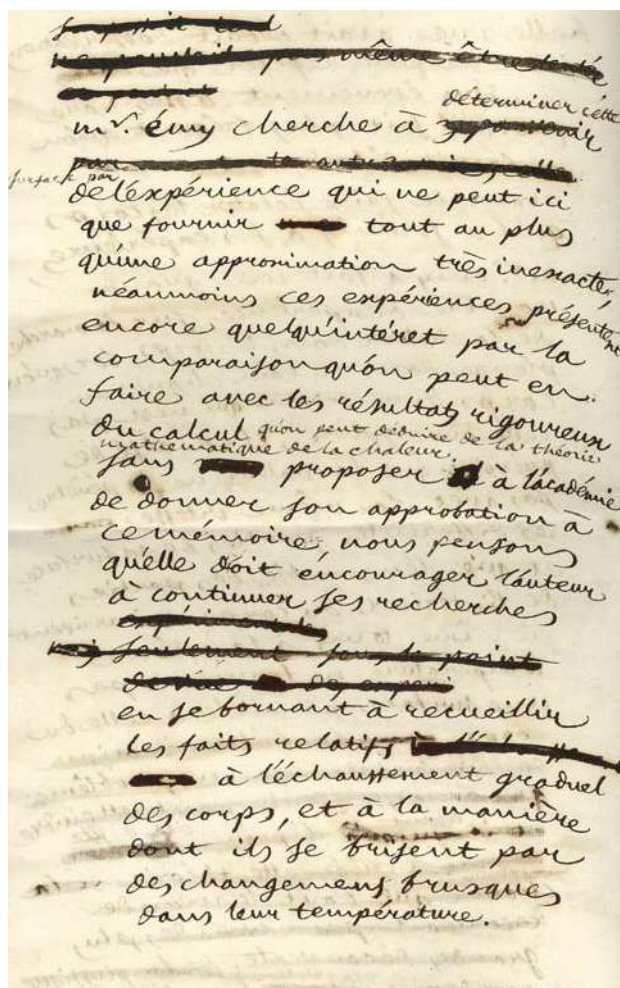 ne pouvait pas même être tentée
déterminer cette
mr. émy cherche à
surface par
de l'expérience qui ne peut ici
que fournir tout au plus
qu'une approximation très inexacte,
néanmoins ces expériences présentent
encore quelqu'intéret par la
comparaison qu'on peut en
faire avec les résultats rigoureux
du calcul qu'on peut déduire de la théorie
mathématique de la chaleur.
sans proposer à l'académie
de donner son approbation à
ce mémoire, nous pensons
qu'elle doit encourager l'auteur
à continuer ses recherches
seulement sous le point
de vue des experi
en se bornant à recueillir
les faits relatifs
à l'échauffement graduel
des corps, et à la manière
dont ils se brisent par
des changemens brusques
dans leur température.